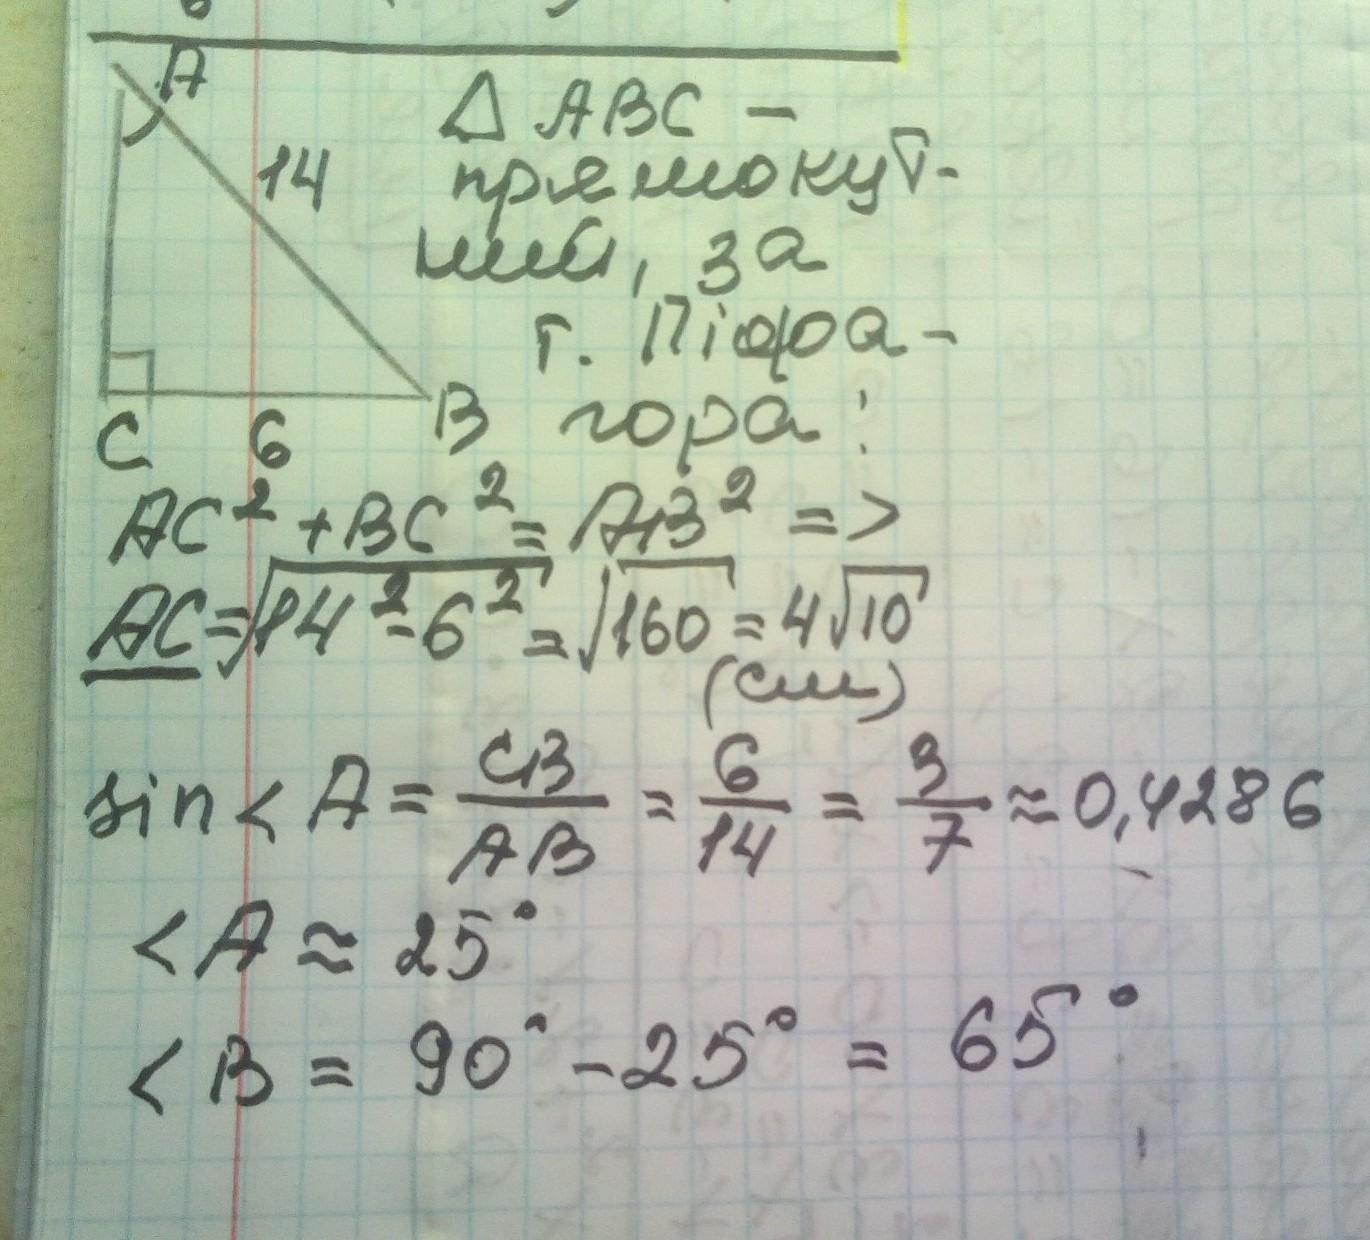 A
14
C 6 B
△ ABC –
прямокут-
ний, за
т. Піфа-
гора:
AC² + BC² = AB² =>
AC = √14² - 6² = √160 = 4√10
(см)
sin < A = CB/AB = 6/14 = 3/7 ≈ 0,4286
< A ≈ 25°
< B = 90° - 25° = 65°